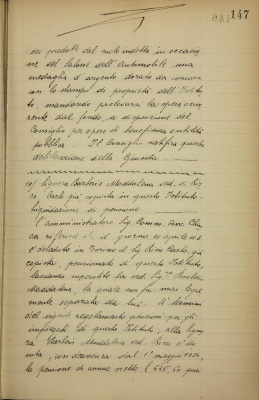 147
dei prodotti del mole indetta in occasio
ne del Salone dell'Automobile una
medaglia d'argento dorato da coniarsi
con lo stampo di proprietà dell'Istitu
to, mandando prelevarsi la spesa occor
rente dal fondo a disposizione del
Consiglio per opere di beneficenza e utilità
pubblica. Il Consiglio ratifica questa
deliberazione della Giunta.
Maddalena ved. Ri
co, Carlo già copista in questo Istituto -
Liquidazione di pensione
L'amministratore Sig. Comm. Avv.
riferisce: il giorno 29 aprile u.s.
è deceduto in Torino il Sig. Rico Carlo già
copista, pensionato di questo Istituto,
lasciando superstite la ved. Sig.ra
Maddalena la quale non fu mai legal
mente separata da lui. A termini
del vigente regolamento pensioni per gli
impiegati di questo Istituto, alla Signo
ra Maddalena ved. Rico è do
vuta, con decorrenza dal 1° maggio
la pensione di annue nette L. 535,50 pari